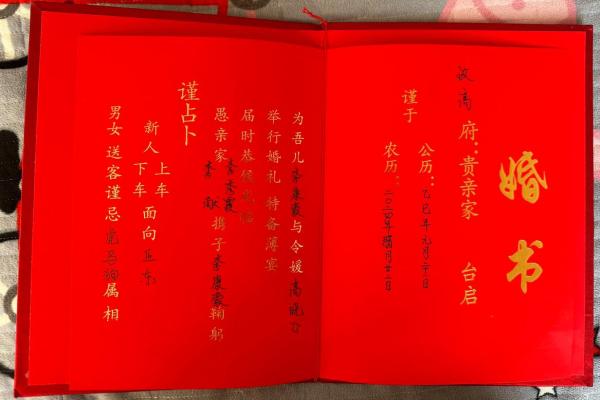 婚书
高府：贵亲家 台启
谨于
公历：乙巳年元月日
农历：二〇二四年腊月日
为吾儿李康与令媛高晓
举行婚礼 特备薄宴
届时恭候光临
愚亲家 李秀霞 李献 携子李康鞠躬
谨占卜
新人 上车 下车 面向 正东
男女送客谨忌虎马狗属相